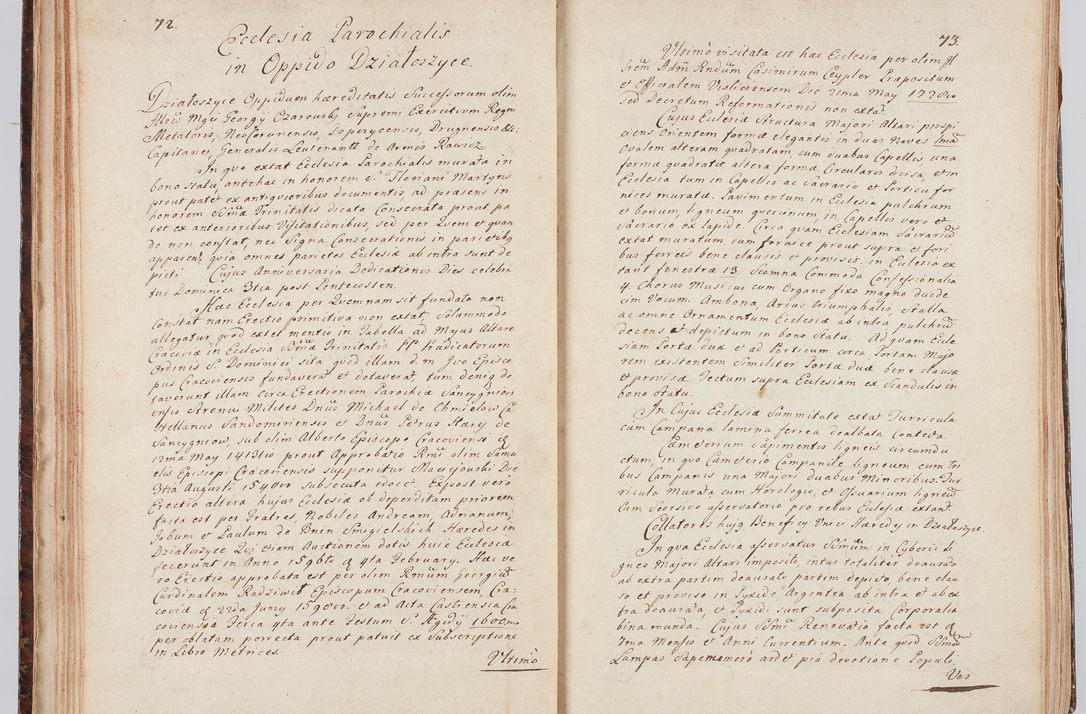 72.
Ecclesia Parochialis
in Oppido Działoszyce.
Działoszyce Oppidum hæreditatis Successorum olim
Illris Mgci Georgy Ozarowsky Supremi Exercituum Regni
Metatoris, Drugnensis &c.
Capitanei, Generalis Leutenantt de Armis Rawicz
In quo extat Ecclesia Parochialis murata in
bono Statu, antehac in honorem S. Floriani Martyris
prout patet ex antiquioribus documentis, ad præsens in
honorem SSmæ Trinitatis dicata Consecrata prout pa
tet ex anterioribus Visitationibus, sed per Quem et quan
do non constat, nec Signa Consecrationis in parietib9
apparent, quia omnes parietes Ecclesiæ ab intra sunt de
picti. Cujus Anniversaria Dedicationis Dies celebra
tur Dominica 3tia post Pentecosten.
Hæc Ecclesia per Quemnam sit fundata non
Constat nam Erectio primitiva non extat, Solummodo
allegatur quod extet mentio in Tabella ad Majus Altare
Cracoviæ in Ecclesia SSmæ Trinitatis PP Prædicatorum
Ordinis S. Dominici sita quod illam d. m. Ivo Episco
pus Cracoviensis fundaverat et dotaverat, tum deniq do
taverunt illam circa Erectionem Parochiæ Sancygniovi
ensis Strenui Milites Dnus Michael de Chmielow Ca
stellanus Sandomiriensis et Dnus Petrus Stary de
Sancygniow, sub olim Alberto Episcopo Cracoviensi d.
12ma May 1413tio prout Approbatio Rmi olim Samu
elis Episcopi Cracoviensis supponitur Maciejowski Die
3tia Augusti 1540vo subsecuta edocet. Expost vero
Erectio altera hujus Ecclesiæ ob deperditam priorem
facta est per Fratres, Nobiles Andream, Adrianum,
Jobum et Paulum de Bnin Smigielskich Hæredes in
Działoszyce Qui etiam Auctionem dotis huic Ecclesiæ
fecerunt in Anno 1596to d. 4ta February. Hæc ve
ro Erectio approbata est per olim Rmum Georgiu
Cardinalem Radziwił Episcopum Cracoviensem, Cra
coviæ d. 22da Juny 1598vo. et ad Acta Castrensia Cra
coviensia Feria 4ta ante Festum S. Ægidy 1600mo
per oblatam porrecta prout patuit ex Subscriptione
in Libro Metrices.
Ultimo
73.
Ultimo visitata est hæc Ecclesia per olim Il
lrem Adm Rndum Casimirum Ceypler Præpositum
et Officialem Visliciensem Die 21ma May 1728vo
sed Decretum Reformationis non extat.
Cujus Ecclesiæ Structura Majori Altari prospi
ciens Orientem formæ elegantis in duas Naves Ima
Ovalem alteram quadratam, cum duabus Capellis, una
forma quadrata altera forma Circularis versa, et in
Ecclesia tum in Capellis ac Sacrario et Porticu for
nices muratæ. Pavimentum in Eclesia pulchrum
et bonum, ligneum quernum, in Capellis vero et
Sacrario ex lapide. Circa quam Ecclesiam Sacrariu
extat muratum cum fornice prout supra et fori
bus ferreis bene clausis et provisis. in Ecclesia ex
tant fenestræ 13. Scamna Commoda Confessionalia
4. Chorus Musicus cum Organo fixo magno duode
cim Vocum. Ambona, Arcus triumphalis, Stalla
ac omne Ornamentum Ecclesiæ ab intra pulchru
decens et depictum in bono Statu. Ad quam Eccle
siam Portæ duæ et ad Porticum circa Portam Majo
rem existentem Similiter Portæ duæ bene clausæ
et provisæ. Tectum supra Ecclesiam ex Scandulis in
bono Statu.
In Cujus Ecclesiæ Summitate extat Turricula
cum Campana lamina ferrea dealbata Contecta.
Cæmeterium dupimentis ligneis circumdu
ctum, in quo Cæmeterio Campanile ligneum cum tri
bus Campanis una Majori duabus Minoribus. Tur
ricula Murata cum Horologio, et Ossuarium ligneu
tam Secessivo asservatorio pro rebus Eclesiæ extant.
Collatores huj9 Beneficy Unici Hæredes in Działoszyce.
In qua Ecclesia asservatur SSmum in Cyborio li
gneo Majori Altari imposito, intus totaliter deaurato
ab extra partim deaurato partim depicto, bene clau
so et proviso in Pyxide Argentea ab intra et ab ex
tra deaurata, et Pyxidi sunt subposita Corporalia
bina munda. Cujus SSmi Renovatio facta est d.
7ma Mensis et Anni Currentium. Ante quod SSmu
Lampas Sæpenumero ardet pia devotione Populi.
Vas